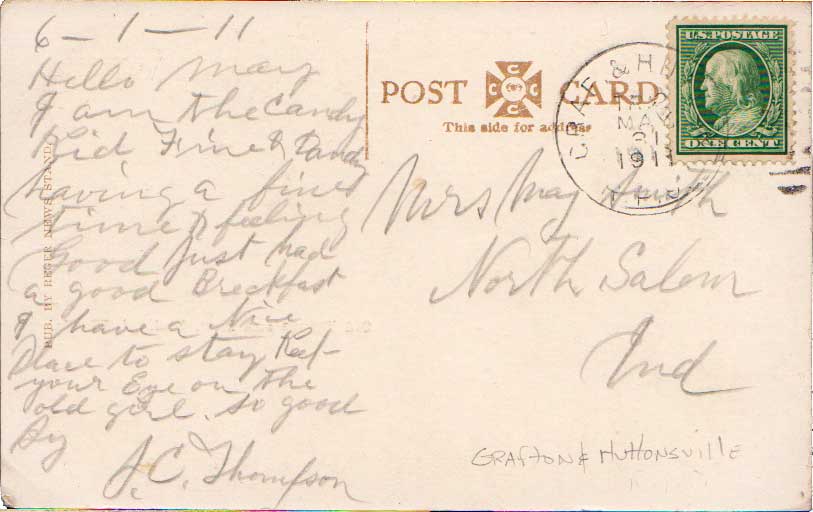 6-1-11
Hello May
I am the Candy
Kid Fine & Dandy
having a fine
time & feeling
Good Just had
a good Breckfast
I have a Nice
Place to stay Keep
your Eye on the
old girl. so good
By
J.C. Thompson
PUB. BY REGER NEWS STAND.
POST CARD
This side for address
C C C C
GRAF & HU
MAY
31
1911
U.S. POSTAGE
ONE CENT
Mrs May Smith
North Salem
Ind
GRAFTON & HUTTONSVILLE